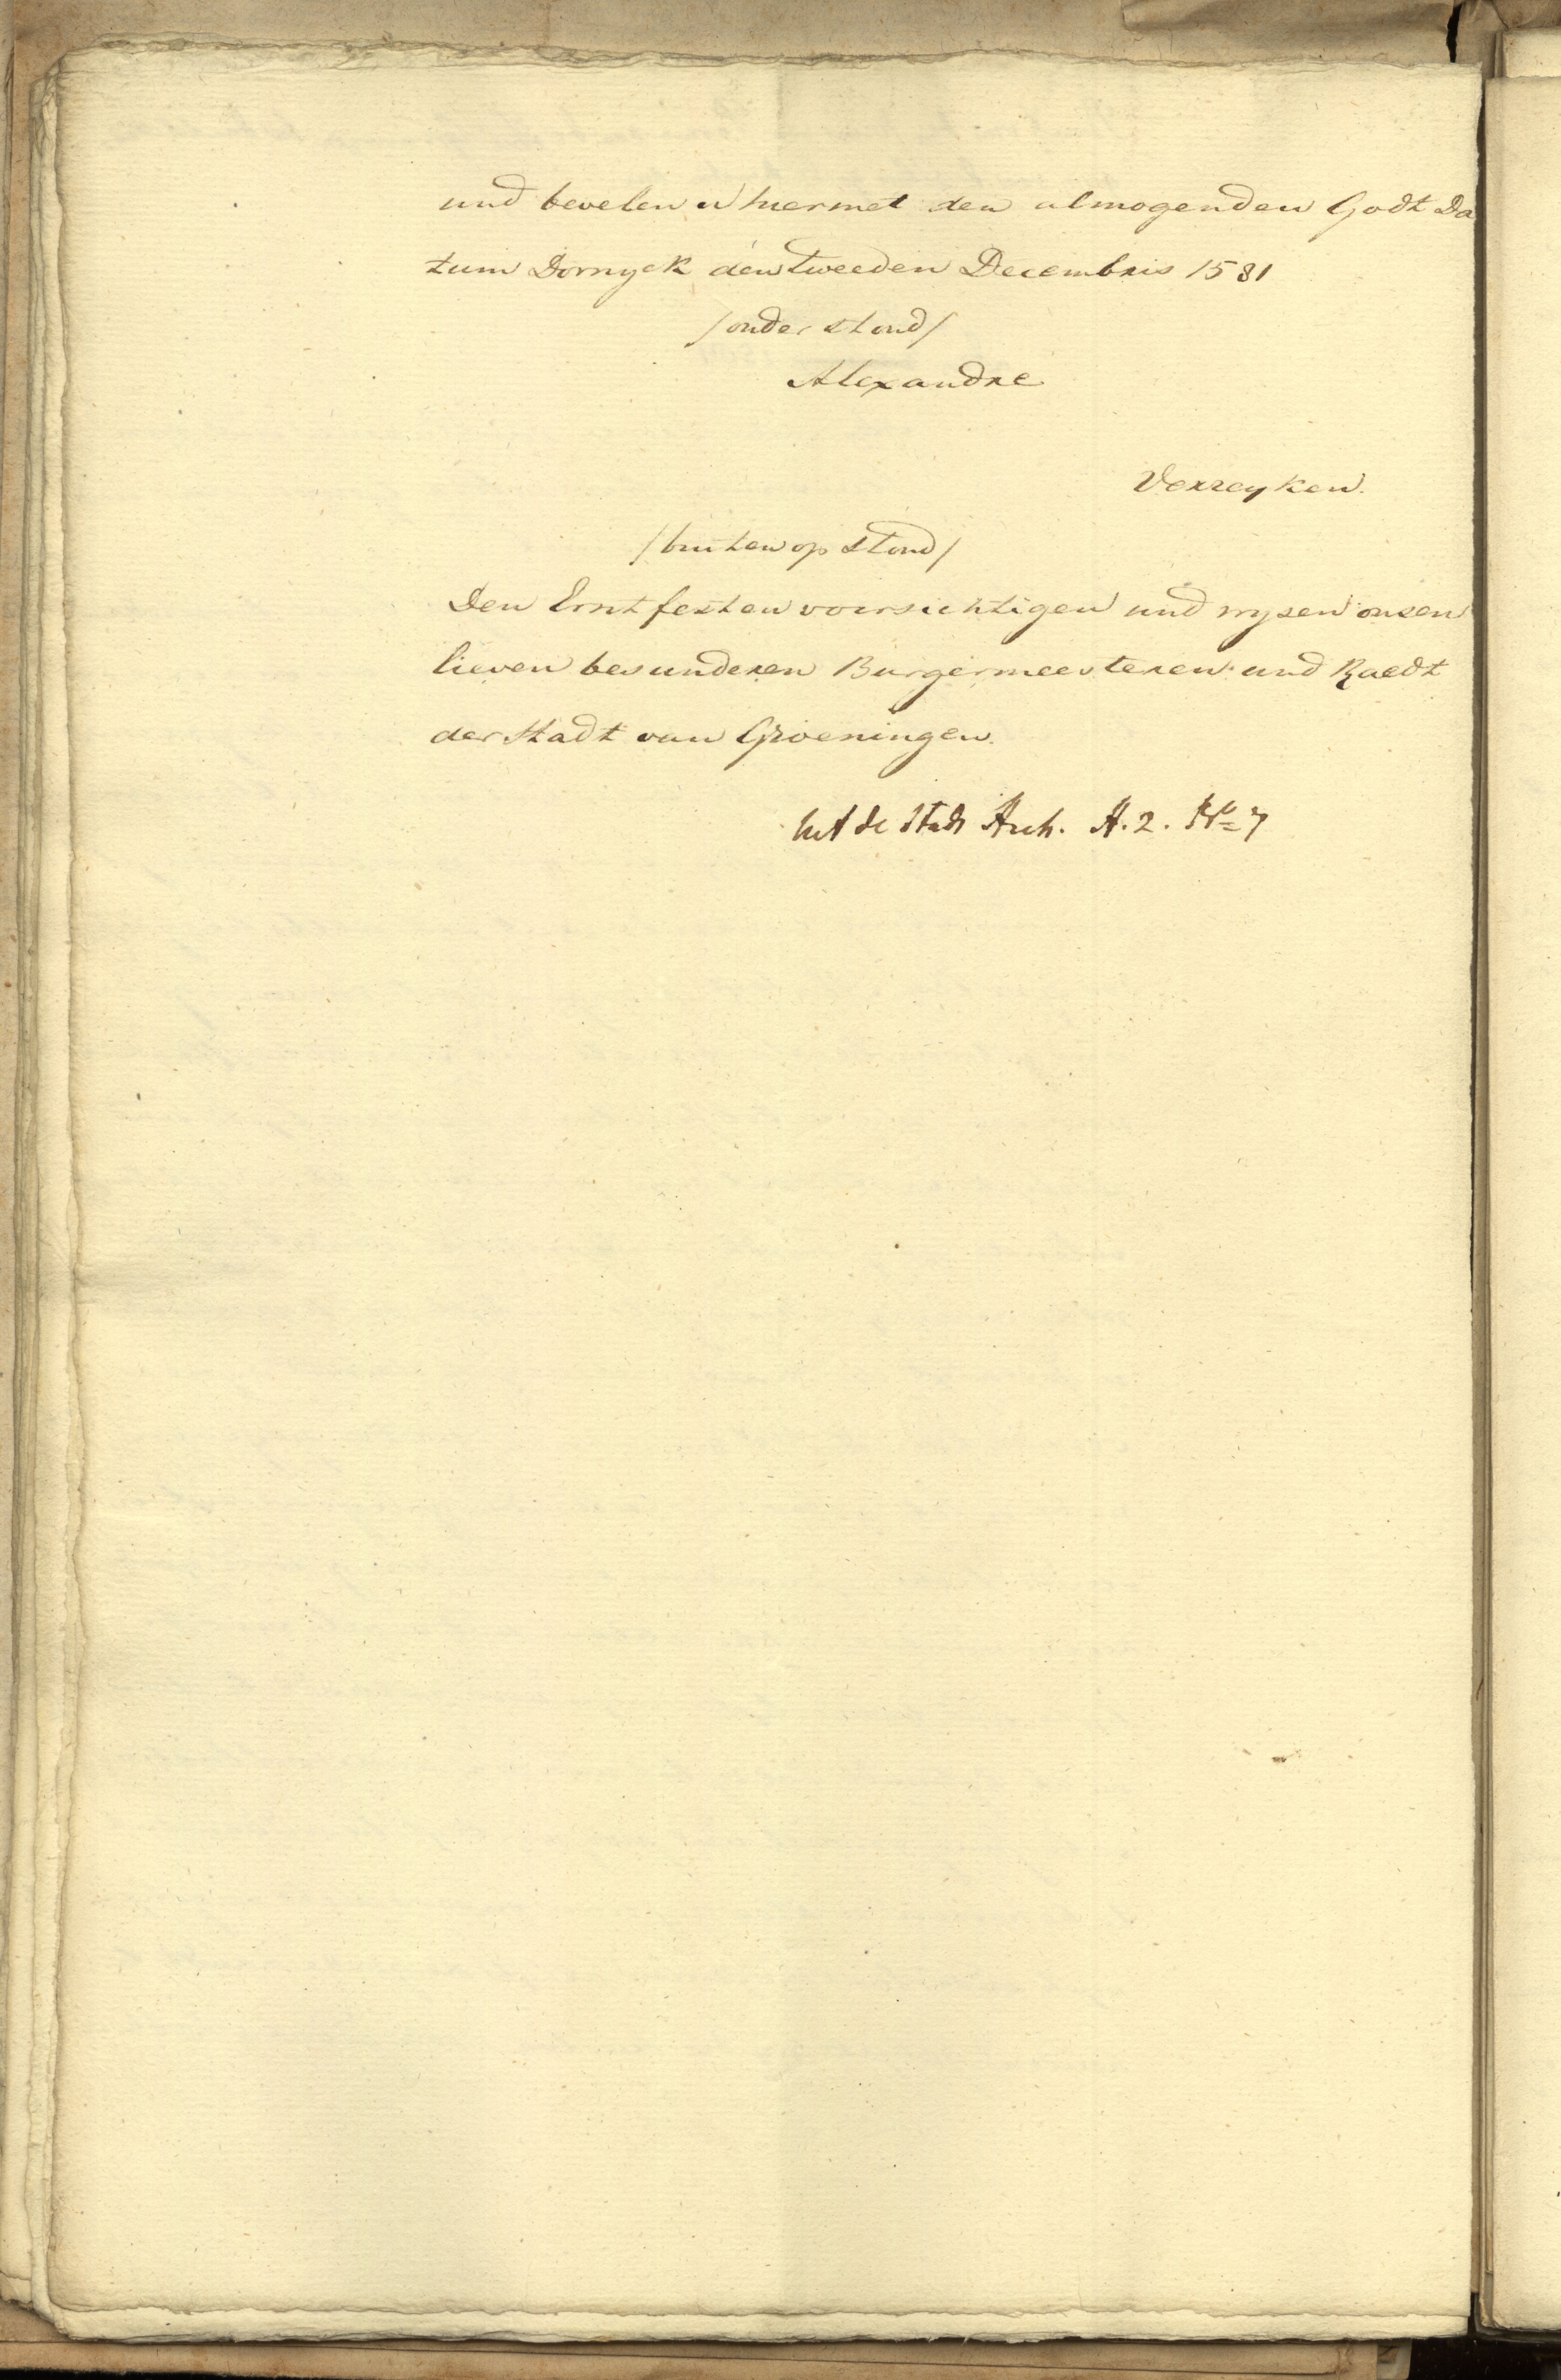 und bevelen u hiermet den almogenden Godt Da
tum Dornyck den tweeden Decembris 1581
/onder stond/
Alexandre
Verreyken.
/buiten op stond/
Den Erntfesten voirsichtigen und wysen onsen
lieven besunderen Burgermeesteren und Raedt
der Stadt van Groeningen.
Uit de Stads Arch. A. 2. No 7